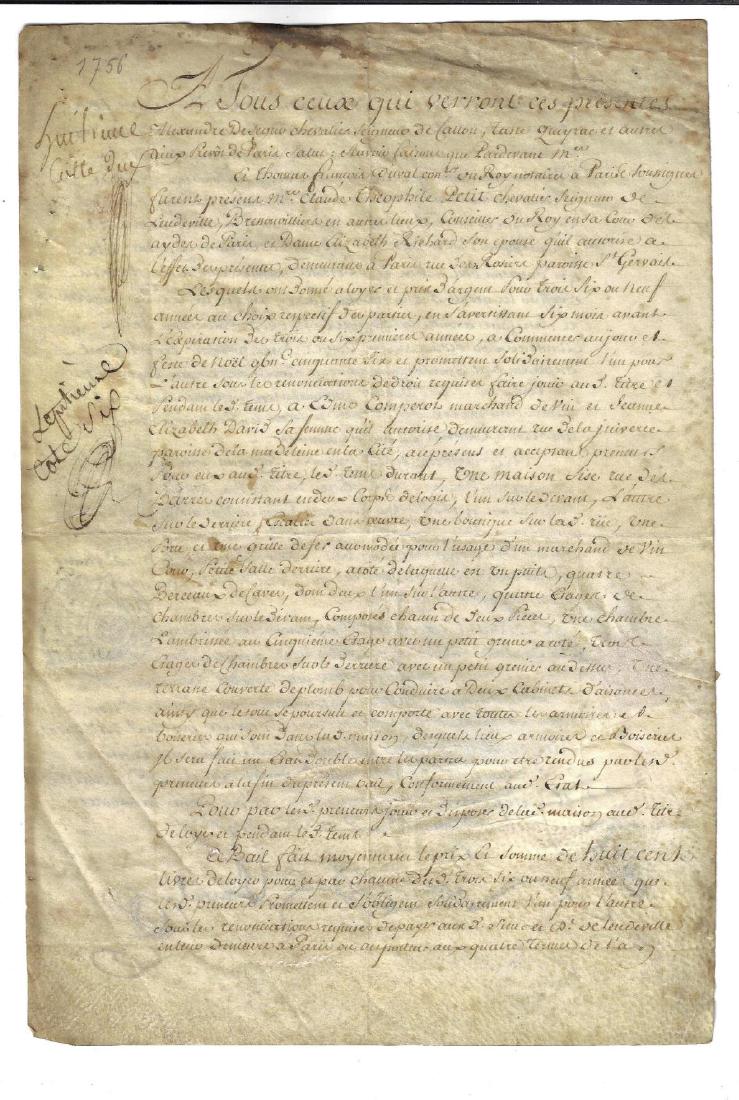 1756
A Tous ceux qui verront ces presentes
Alexandre De Segur chevalier Seigneur de Callon, et autres
Prevôt de Paris Salut; Sçavoir faisons que Pardevant Me.
Thomas françois Duval con.er du Roy notaire à Paris Soussigné
furent presens M.re Claude Theophile Petit chevalier Seigneur de
Leudeville, Brenouvilliers et autres lieux, Conseiller du Roy en sa Cour des
aydes de Paris, et Dame Elizabeth Richard son epouse qu'il autorise a
l'effet des presentes, demeurans à Paris rue des Rosiers paroisse S.t Gervais
Lesquels ont donné a loyer et prix d'argent Pour trois Six ou Neuf
années au choix respectif des parties, en s'avertissant Six mois avant
l'expiration des trois ou six premieres années, a Commencer au jour et
feste de Noël cinquante Six et promettent Solidairement l'un pour
l'autre sous les renonciations de droit requises faire jouir aud. titre et
Pendant led. tems, a Edme Comperot marchand de Vin et Jeanne
Elizabeth David Sa femme qu'il autorise demeurant rue de la juiverie
paroisse de la madeleine en la Cité, a ce presens et acceptans preneurs
Pour eux aud. titre, led. tems durant, Une maison Sise rue des
Barres consistant en deux Corps de logis, l'un sur le devant, L'autre
Sur le derrière, Escalier dans œuvre, Une boutique Sur lad. rüe, Une
Porte et une grille de fer accomodée pour l'usage d'un marchand de Vin
Cour, Petite Salle derrière, a coté de laquelle est un puits, quatre
Berceaux de Caves, dont deux l'un Sur l'autre, quatre Etages de
chambres Sur le devant, Composés chacun de deux Pieces, Une chambre
Lambrissée au Cinquieme Etage avec un petit grenier a coté, trois
Etages de Chambres Sur le derriere avec un petit grenier au dessus, Une
terrasse Couverte de plomb pour Conduire a Deux Cabinets d'aisance,
ainsy que le tout se poursuit et comporte avec toutes les armoires et
boiseries qui Sont Dans lad. maison, desquels lieux armoires et Boiseries
Il Sera fait un Etat Double entre les parties pour etre rendus par lesd.
preneurs a la fin du present bail, Conformement aud. Etat.
Pour par lesd. preneurs jouir et disposer de lad. maison aud. titre
de loyer et pendant led. tems.
Ce Bail fait moyennant le prix et Somme de huit cent
livres de loyer pour et par chacune desd. trois Six ou neuf années que
lesd. preneurs Promettent et S'obligent Solidairement l'un pour l'autre
Sous les renonciations requises de payer aux d. Sieur et De. de Leudeville
en leur Demeure a Paris ou au porteur aux quatre termes de l'an
huitieme
Cotte
Septieme
Cote Six